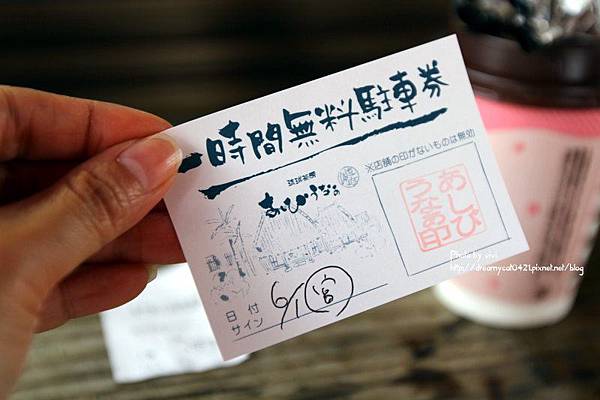 一時間無料駐車券
※店舗の印がないものは無効
琉球茶房
あしびうなぁ
あしび
うなぁ印
日付
サイン
6/1 宮
Photo by vivi
http://dreamycat0421.pixnet.net/blog